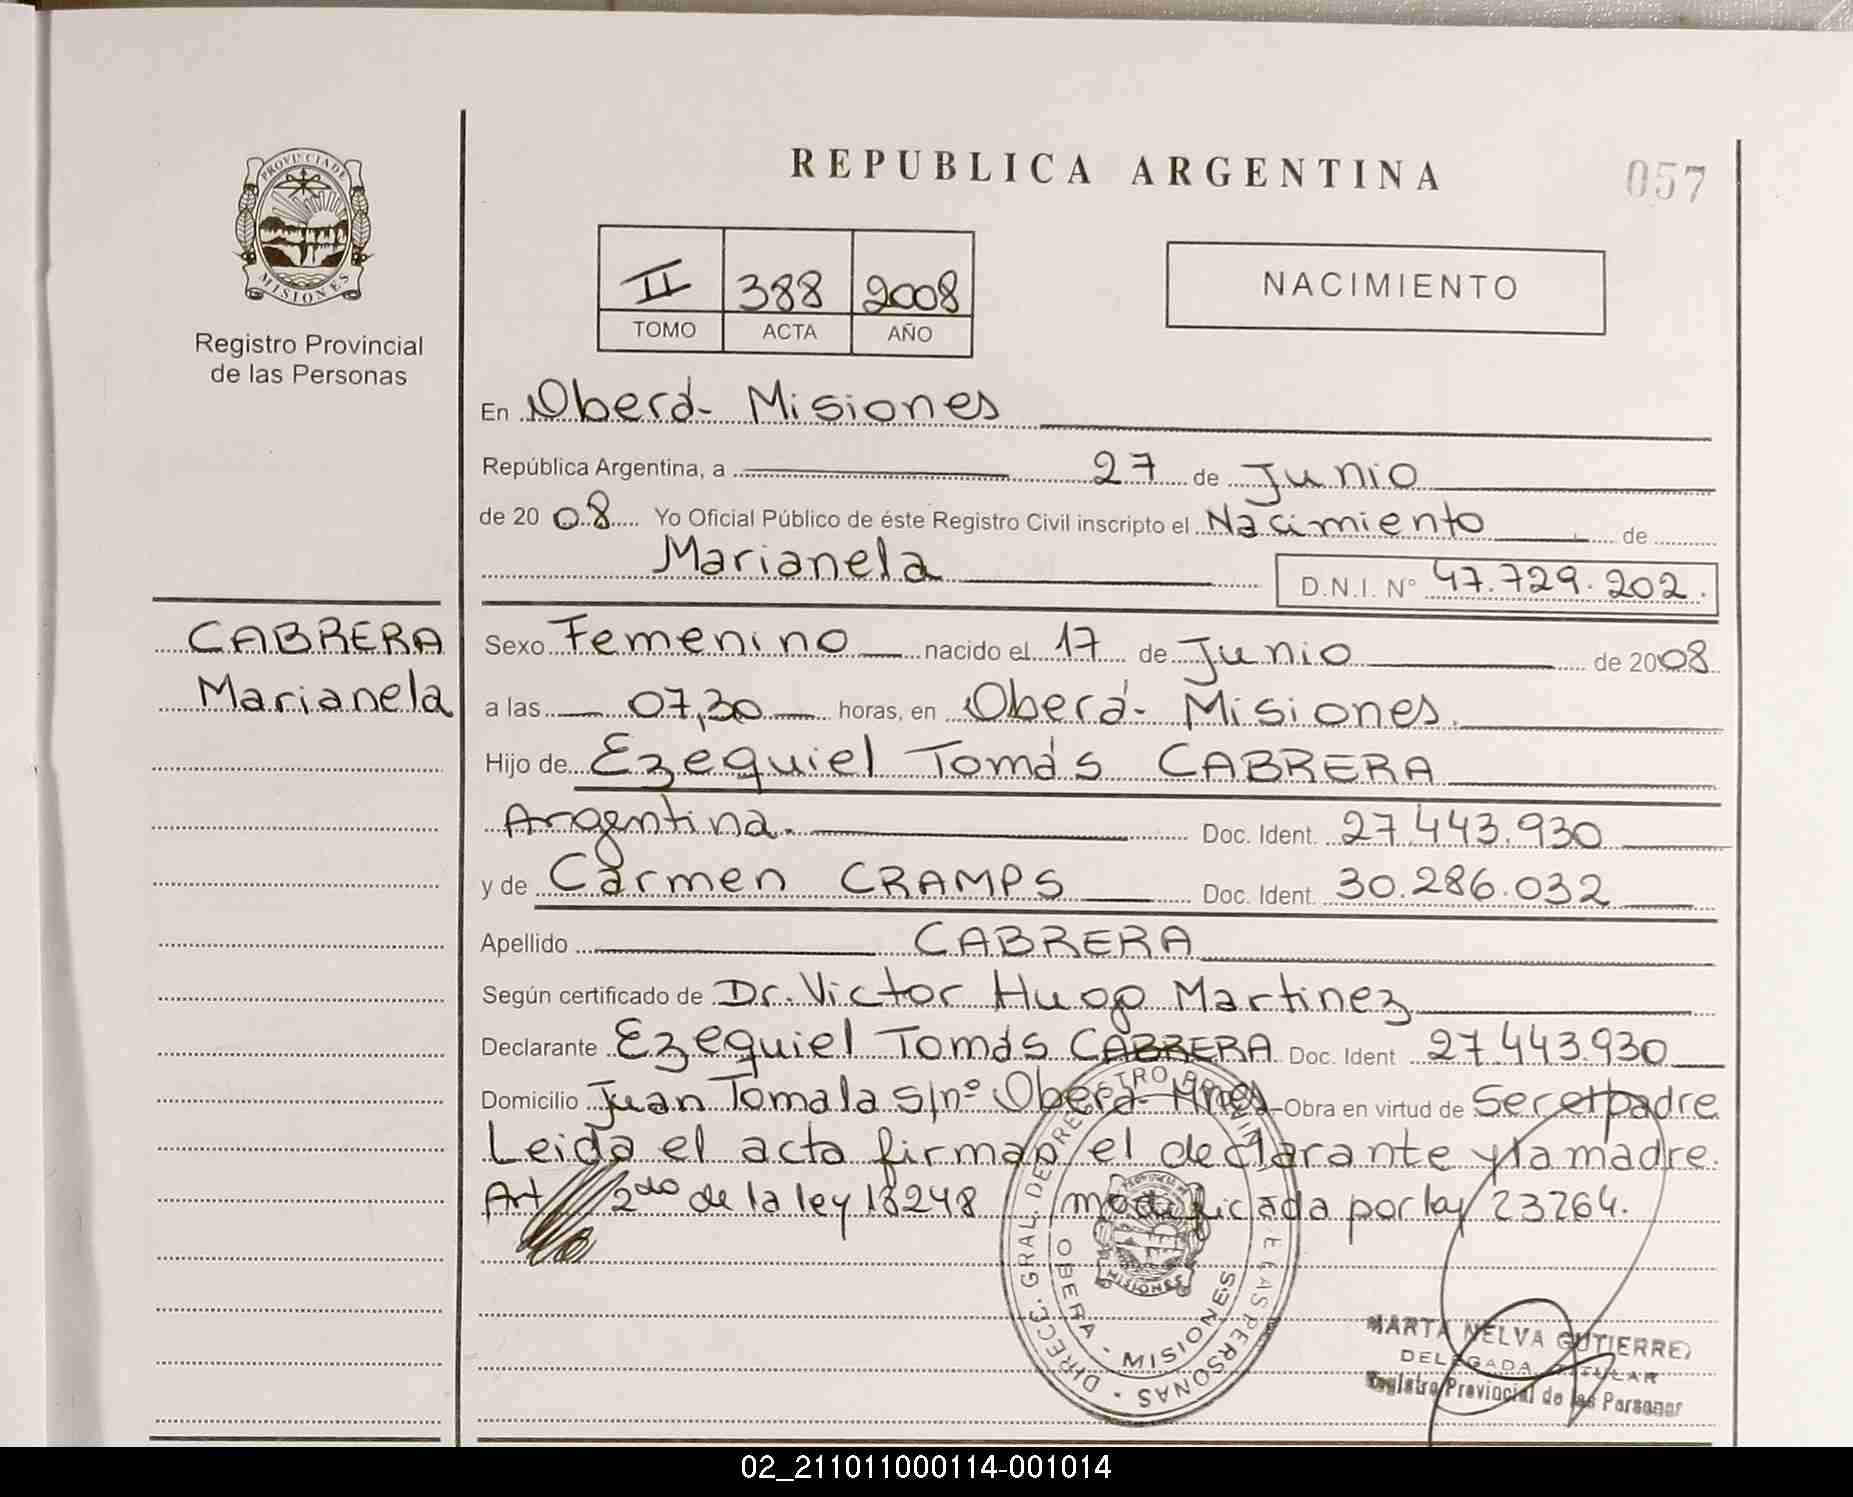 REPUBLICA ARGENTINA
057
PROVINCIA DE
MISIONES
Registro Provincial
de las Personas
II 388 2008
TOMO ACTA AÑO
NACIMIENTO
En Oberá- Misiones
República Argentina, a 27 de Junio
de 20 08 Yo Oficial Público de éste Registro Civil inscripto el Nacimiento de
Marianela D.N.I. Nº 47.729.202.
CABRERA
Marianela
Sexo Femenino nacido el 17 de Junio de 2008
a las 07,30 horas, en Oberá- Misiones.
Hijo de Ezequiel Tomás CABRERA
Argentina. Doc. Ident. 27.443.930
y de Carmen CRAMPS Doc. Ident. 30.286.032
Apellido CABRERA
Según certificado de Dr. Victor Hugo Martinez
Declarante Ezequiel Tomás CABRERA Doc. Ident 27.443.930
Domicilio Juan Tomala s/nº Oberá- Mnes Obra en virtud de Ser el padre
Leida el acta firman el declarante y la madre.
Art 2do de la ley 18248 modificada por ley 23264.
DIRECC. GRAL. DEL REGISTRO PROVIN DE LAS PERSONAS
OBERA - MISIONES
MISIONES
MARTA NELVA GUTIERREZ
DELEGADA TITULAR
Registro Provincial de las Personas
02_211011000114-001014